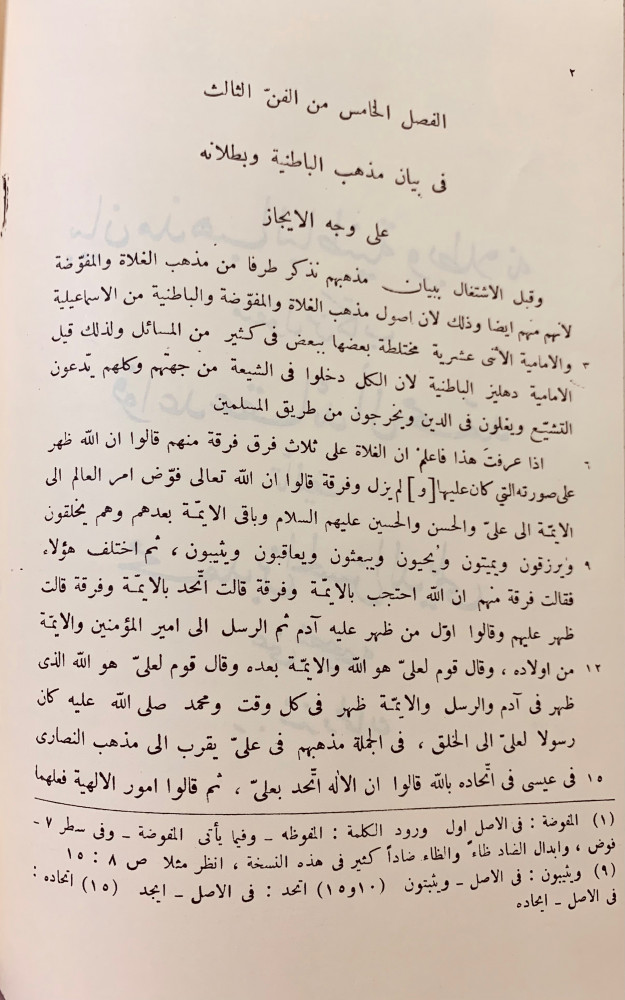 ٢
الفصل الخامس من الفنّ الثالث
فى بيان مذهب الباطنية وبطلانه
على وجه الايجاز
وقبل الاشتغال ببيان مذهبهم نذكر طرفا من مذهب الغلاة والمفوّضة
لانهم منهم ايضا وذلك لان اصول مذهب الغلاة والمفوّضة والباطنية من الاسماعيلية
٣ والامامية الاثنى عشرية مختلطة بعضها ببعض فى كثير من المسائل ولذلك قيل
الامامية دهليز الباطنية لان الكل دخلوا فى الشيعة من جهتهم وكلهم يدّعون
التشيّع ويغلون فى الدين ويخرجون من طريق المسلمين
٦ اذا عرفتَ هذا فاعلمْ ان الغلاة على ثلاث فرق فرقة منهم قالوا ان الله ظهر
على صورته التى كان عليها [و] لم يزل وفرقة قالوا ان الله تعالى فوّض امر العالم الى
الايمّة الى علىّ والحسن والحسين عليهم السلام وباقى الايمّة بعدهم وهم يخلقون
٩ ويرزقون ويميتون ويحيون ويبعثون ويعاقبون ويثيبون ، ثم اختلف هؤلاء
فقالت فرقة منهم ان الله احتجب بالايمّة وفرقة قالت اتّحد بالايمّة وفرقة قالت
ظهر عليهم وقالوا اوّل من ظهر عليه آدم ثم الرسل الى امير المؤمنين والايمّة
١٢ من اولاده ، وقال قوم لعلىّ هو الله والايمّة بعده وقال قوم لعلىّ هو الله الذى
ظهر فى آدم والرسل والايمّة ظهر فى كل وقت ومحمد صلى الله عليه كان
رسولا لعلىّ الى الخلق ، فى الجملة مذهبهم فى علىّ يقرب الى مذهب النصارى
١٥ فى عيسى فى اتّحاده بالله قالوا ان الاله اتّحد بعلىّ ، ثم قالوا امور الالهية فعلهما
(١) المفوضة : فى الاصل اول ورود الكلمة : المفوظه ـ وفيما يأتى المفوضة ـ وفى سطر ٧ ـ
فوض ، وابدال الضاد ظاءً والظاء ضاداً كثير فى هذه النسخة ، انظر مثلا ص ٨ : ١٥
(٩) ويثيبون : فى الاصل ـ ويثبتون (١٠ و١٥) اتحد : فى الاصل ـ ايجد (١٥) اتحاده :
فى الاصل ـ ايحاده